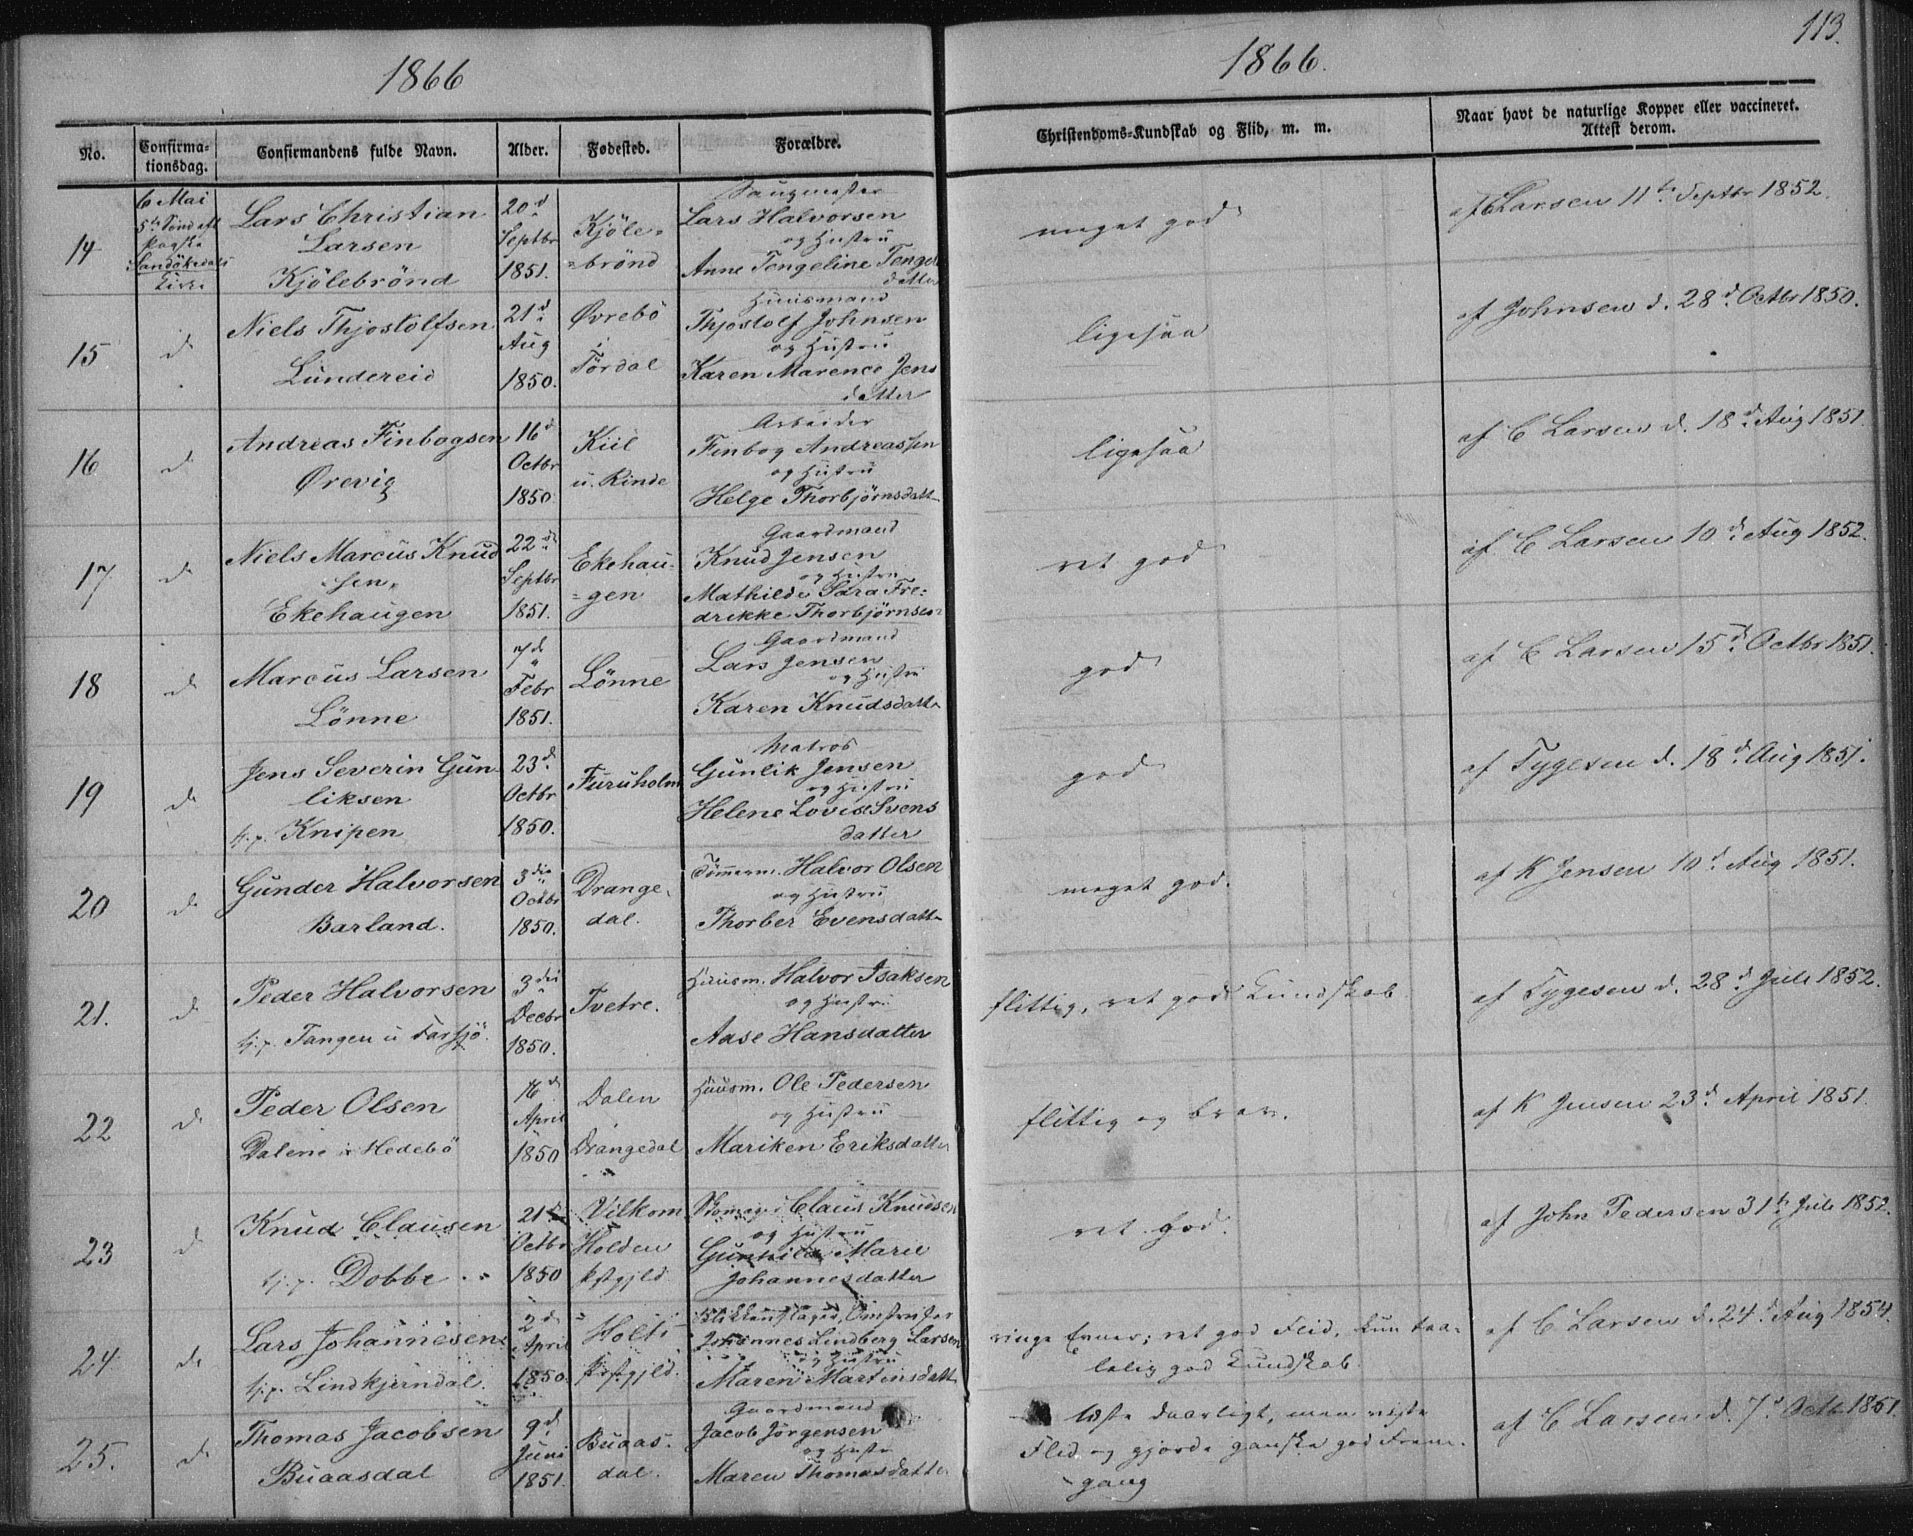 1866
1866.
113.
No.
Confirma-
tionsdag.
Confirmandens fulde Navn.
Alder.
Fødested.
Forældre.
Christendoms-Kundskab og Flid, m. m.
Naar havt de naturlige Kopper eller vaccineret.
Attest derom.
14
6 Mai
5te Sønd eft
Paaske
Sandökedals
Kirke
Lars Christian
Larsen
Kjölebrönd
20d
Septbr
1851.
Kjöle-
=brönd
Saugmester
Lars Halvorsen
og Hustru
Anne Tengeline Tengels
datter
meget god
af C Larsen 11te Septbr 1852.
15
do
Niels Thjostolfsen
Lundereid
21d
Aug
1850.
Øvrebö
i
Tördal
Huusmand
Thjostolf Johnsen
og Hustru
Karen Marence Jens
datter
ligesaa
af Johnsen d. 28d Octbr 1850.
16
do
Andreas Finbogsen
Ørevig
16d
Octbr
1850.
Kiil
u. Rinde
Arbeider
Finbog Andreassen
og Hustru
Helge Thorbjörnsdatt
ligesaa
af C Larsen d. 18d Aug 1851.
17
do
Niels Marcus Knud
sen
Ekehaugen
22de
Septbr
1851.
Ekehau-
=gen
Gaardmand
Knud Jensen
og Hustru
Mathilde Sara Fre=
drikke Thorbjörnsen
ret god
af C Larsen 10d Aug 1852.
18
do
Marcus Larsen
Lönne
7d
Febr
1851.
Lönne
Gaardmand
Lars Jensen
og Hustru
Karen Knudsdatt
god
af C Larsen 15d Octbr 1851.
19
do
Jens Severin Gun
liksen
tj. p. Knipen
23d
Octbr
1850.
Furuholm
Matros
Gunlik Jensen
og Hustru
Helene Lovise Svens
datter
god
af Tygesen d. 18d Aug 1851.
20
do
Gunder Halvorsen
Barland.
3die
Octbr
1850.
Drange-
dal.
Tömmerm. Halvor Olsen
og Hustru
Thorber Evensdatt
meget god.
af K Jensen 10d Aug 1851.
21.
do
Peder Halvorsen
tj. p. Tangen u Farsjö.
3die
Decbr
1850.
Tvetre.
Huusm. Halvor Isaksen
og Hustru
Aase Hansdatter
flittig, ret god Kundskab
af Tygesen d. 28d Juli 1852.
22
do
Peder Olsen
Dalene i Hedebö
16d
April
1850
Dalen
i
Drangedal
Huusm. Ole Pedersen
og Hustru
Mariken Eriksdatter
flittig og brav.
af K Jensen 23d April 1851.
23
do
Knud Clausen
tj. p. Dobbe
21
Octbr
1850
Vilkom
Holden
Pstgjld.
Skomager Claus Knudsen
og Hustru
Gunhild Marie
Johannesdatter
ret god.
af John Pedersen 31te Juli 1852.
24
do
Lars Johannesen
tj. p. Lindkjerndal.
2d
April
1850.
Holts
Pstgjld.
Blikkenslager, Omstreifer
Johannes Lindberg Larsen
og Hustru
Maren Martinsdatt
ringe Evner; ret god Flid, kun taa-
lelig god Kundskab.
af C Larsen d. 24d Aug 1854.
25.
do
Thomas Jacobsen
Buaasdal
9d
Juni
1851.
Buaas-
dal.
Gaardmand
Jacob Jörgensen
og Hustru
Maren Thomasdatter
læste daarligt, men viste
Flid og gjorde ganske god Frem-
gang
af C Larsen d. 7d Octb 1851.